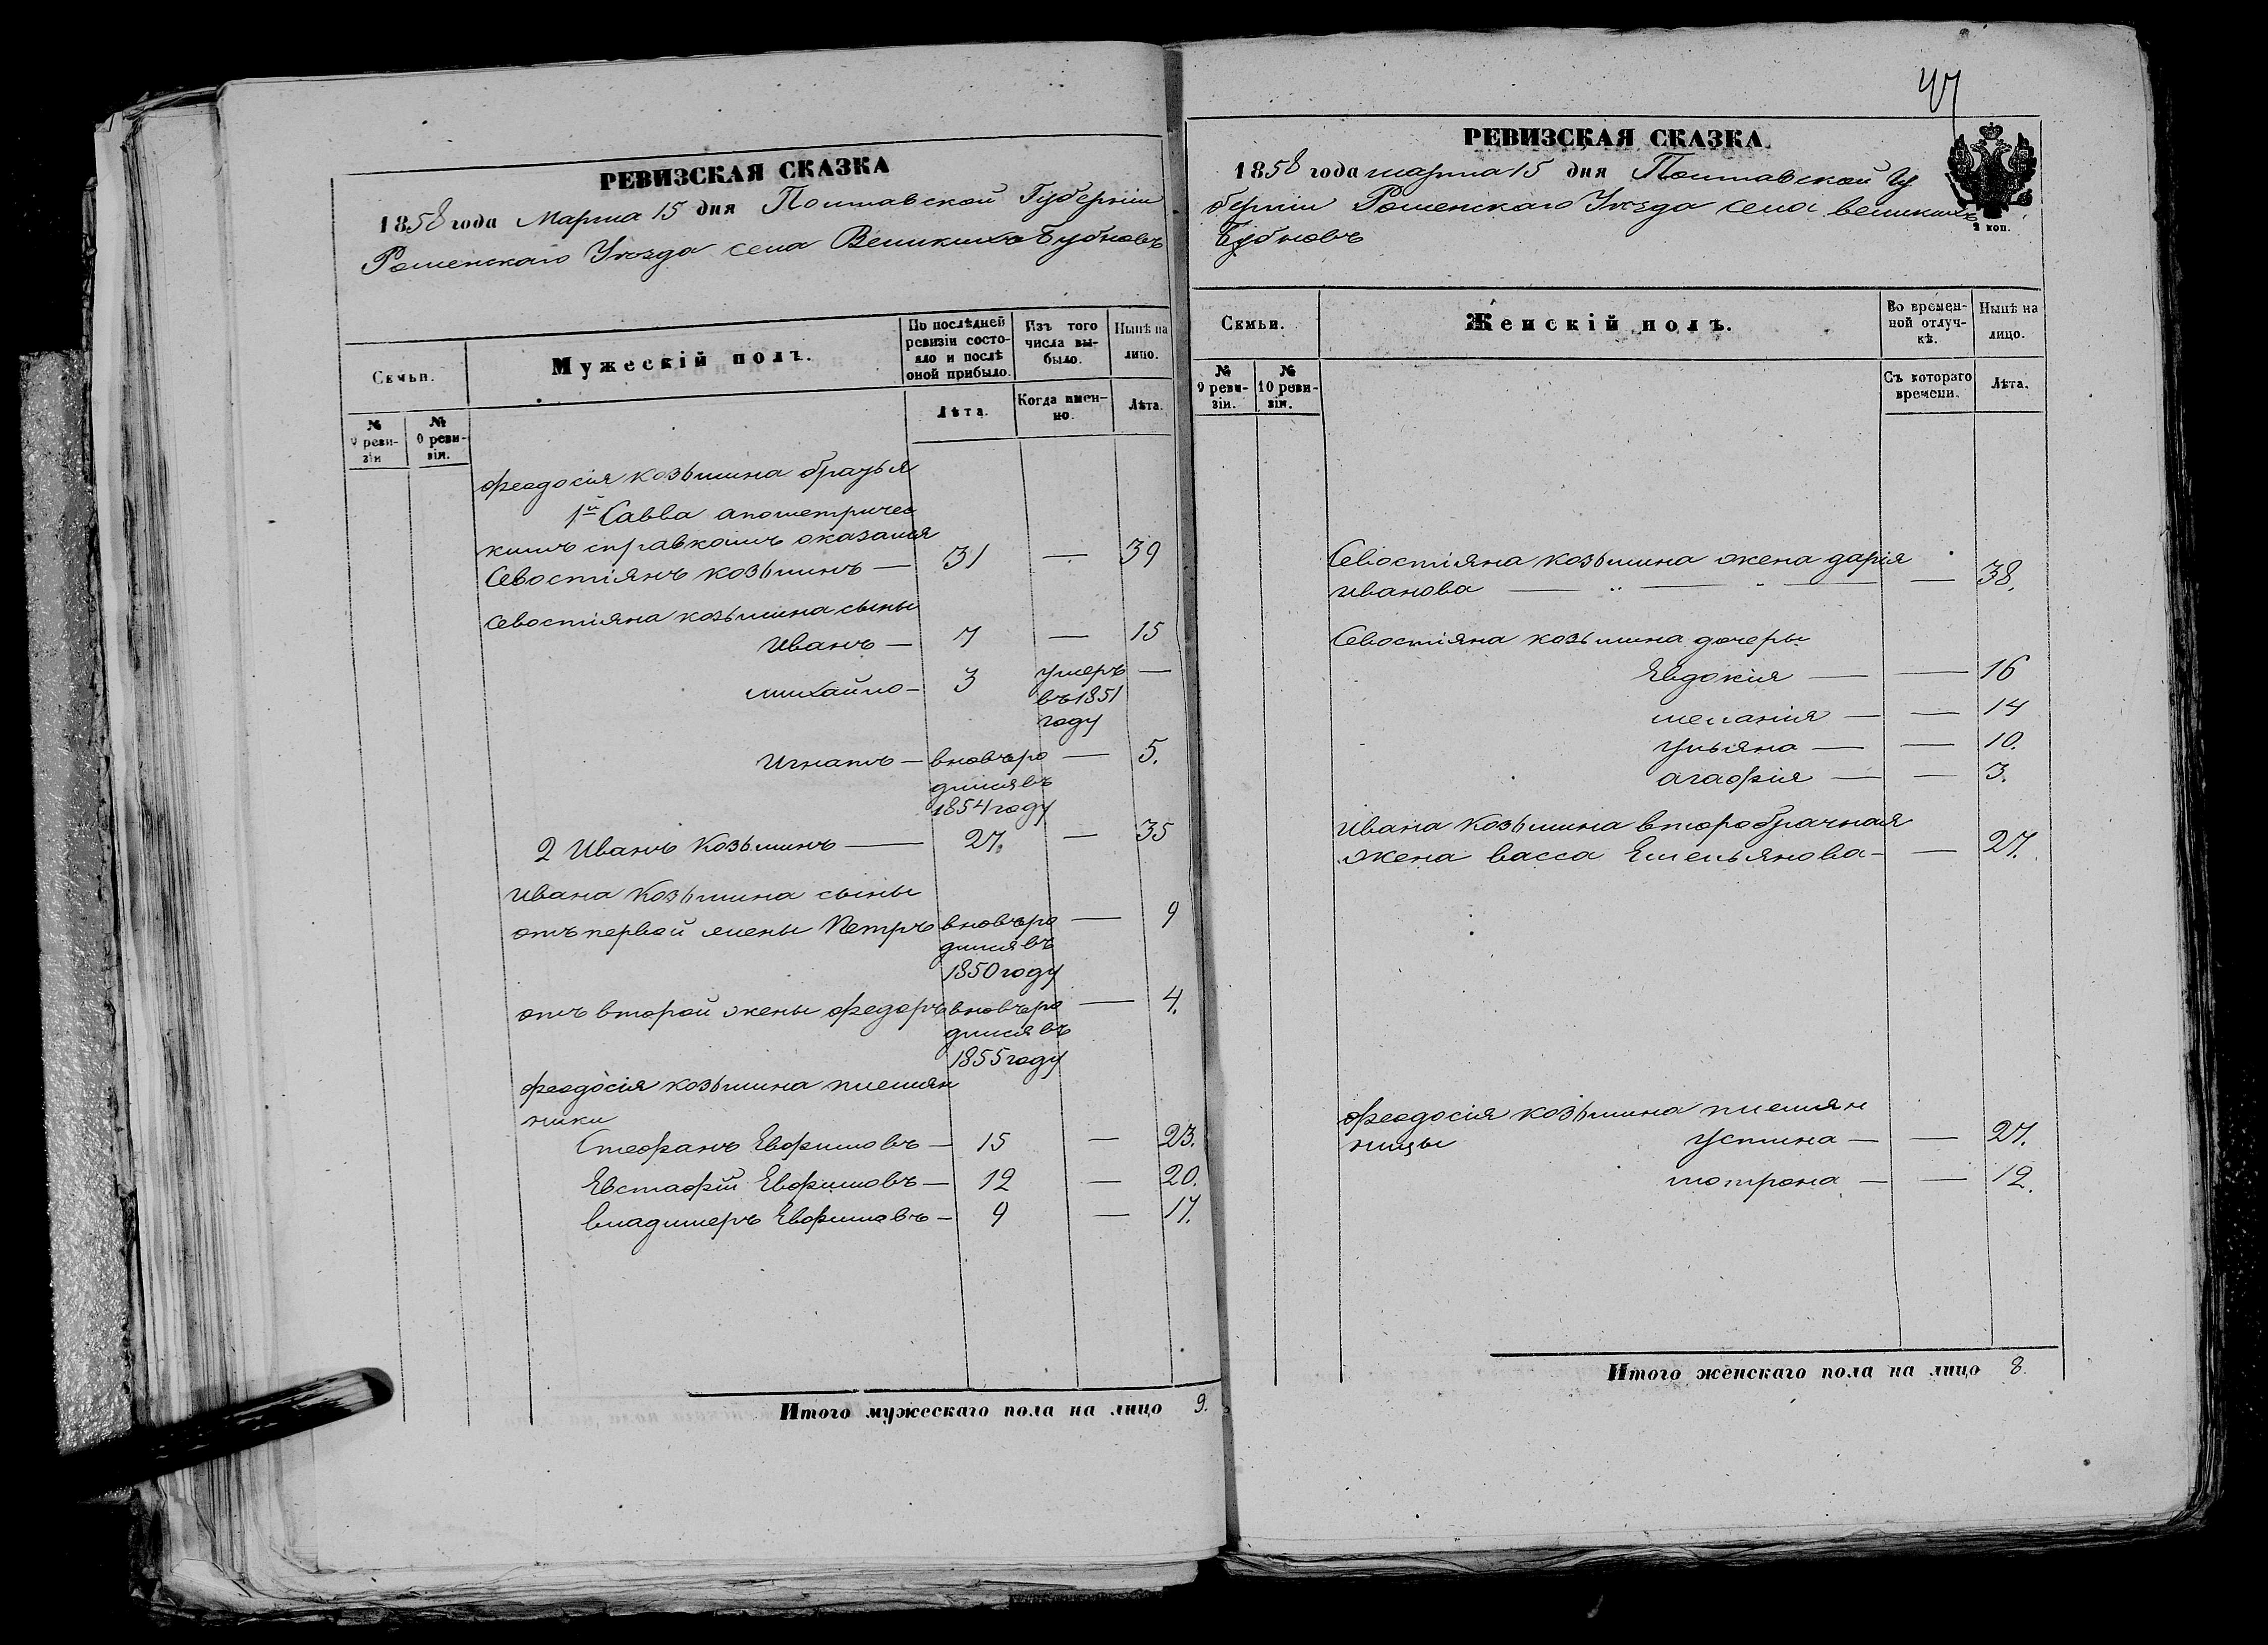 РЕВИЗСКАЯ СКАЗКА
1858 года Марта 15 дня Полтавской Губерніи
Роменскаго Уѣзда села Великихъ Бубновъ
Семьи.
Мужескій полъ.
По послѣдней ревизіи состояло и послѣ оной прибыло.
Изъ того числа выбыло.
Нынѣ на лицо.
№ 9 ревизіи
№ 0 ревизіи.
Лѣта.
Когда именно.
Лѣта.
Феодосія Козьмина братья
1й Савва апометричес
кимъ справкамъ оказался
Севостіянъ Козьминъ — 31 — 39
Севостіяна Козьмина сыны
Иванъ — 7 — 15
Михайло — 3 умеръ —
въ 1851
году
Игнатъ — вновь ро — 5.
дился въ
1854 году
2 Иванъ Козьминъ — 27. — 35
Ивана Козьмина сыны
отъ первой жены Петръ вновь ро — 9
дился въ
1850 году
отъ второй жены Федоръ вновь ро — 4.
дился въ
1855 году
Феодосія Козьмина племян
ники
Стефанъ Евфимовъ — 15 — 23.
Евстафій Евфимовъ — 12 — 20.
Владимеръ Евфимовъ — 9 — 17.
Итого мужескаго пола на лицо 9.
47
РЕВИЗСКАЯ СКАЗКА
1858 года марта 15 дня Полтавской Гу
берніи Роменскаго Уѣзда села великихъ
Бубновъ
2 коп.
Семьи.
Женскій полъ.
Во временной отлучкѣ.
Нынѣ на лицо.
№ 9 ревизіи.
№ 10 ревизіи.
Съ котораго времени.
Лѣта.
Севостіяна Козьмина жена Дарія
Иванова — — — 38.
Севостіяна Козьмина дочеры
Евдокія — — 16
Меланія — — 14
Ульяна — — 10.
Агафія — — 3.
Ивана Козьмина второбрачная
жена Васса Емельянова — — 27.
Феодосія Козьмина племян
ницы Устина — — 27.
Мотрона — — 12.
Итого женскаго пола на лицо 8.